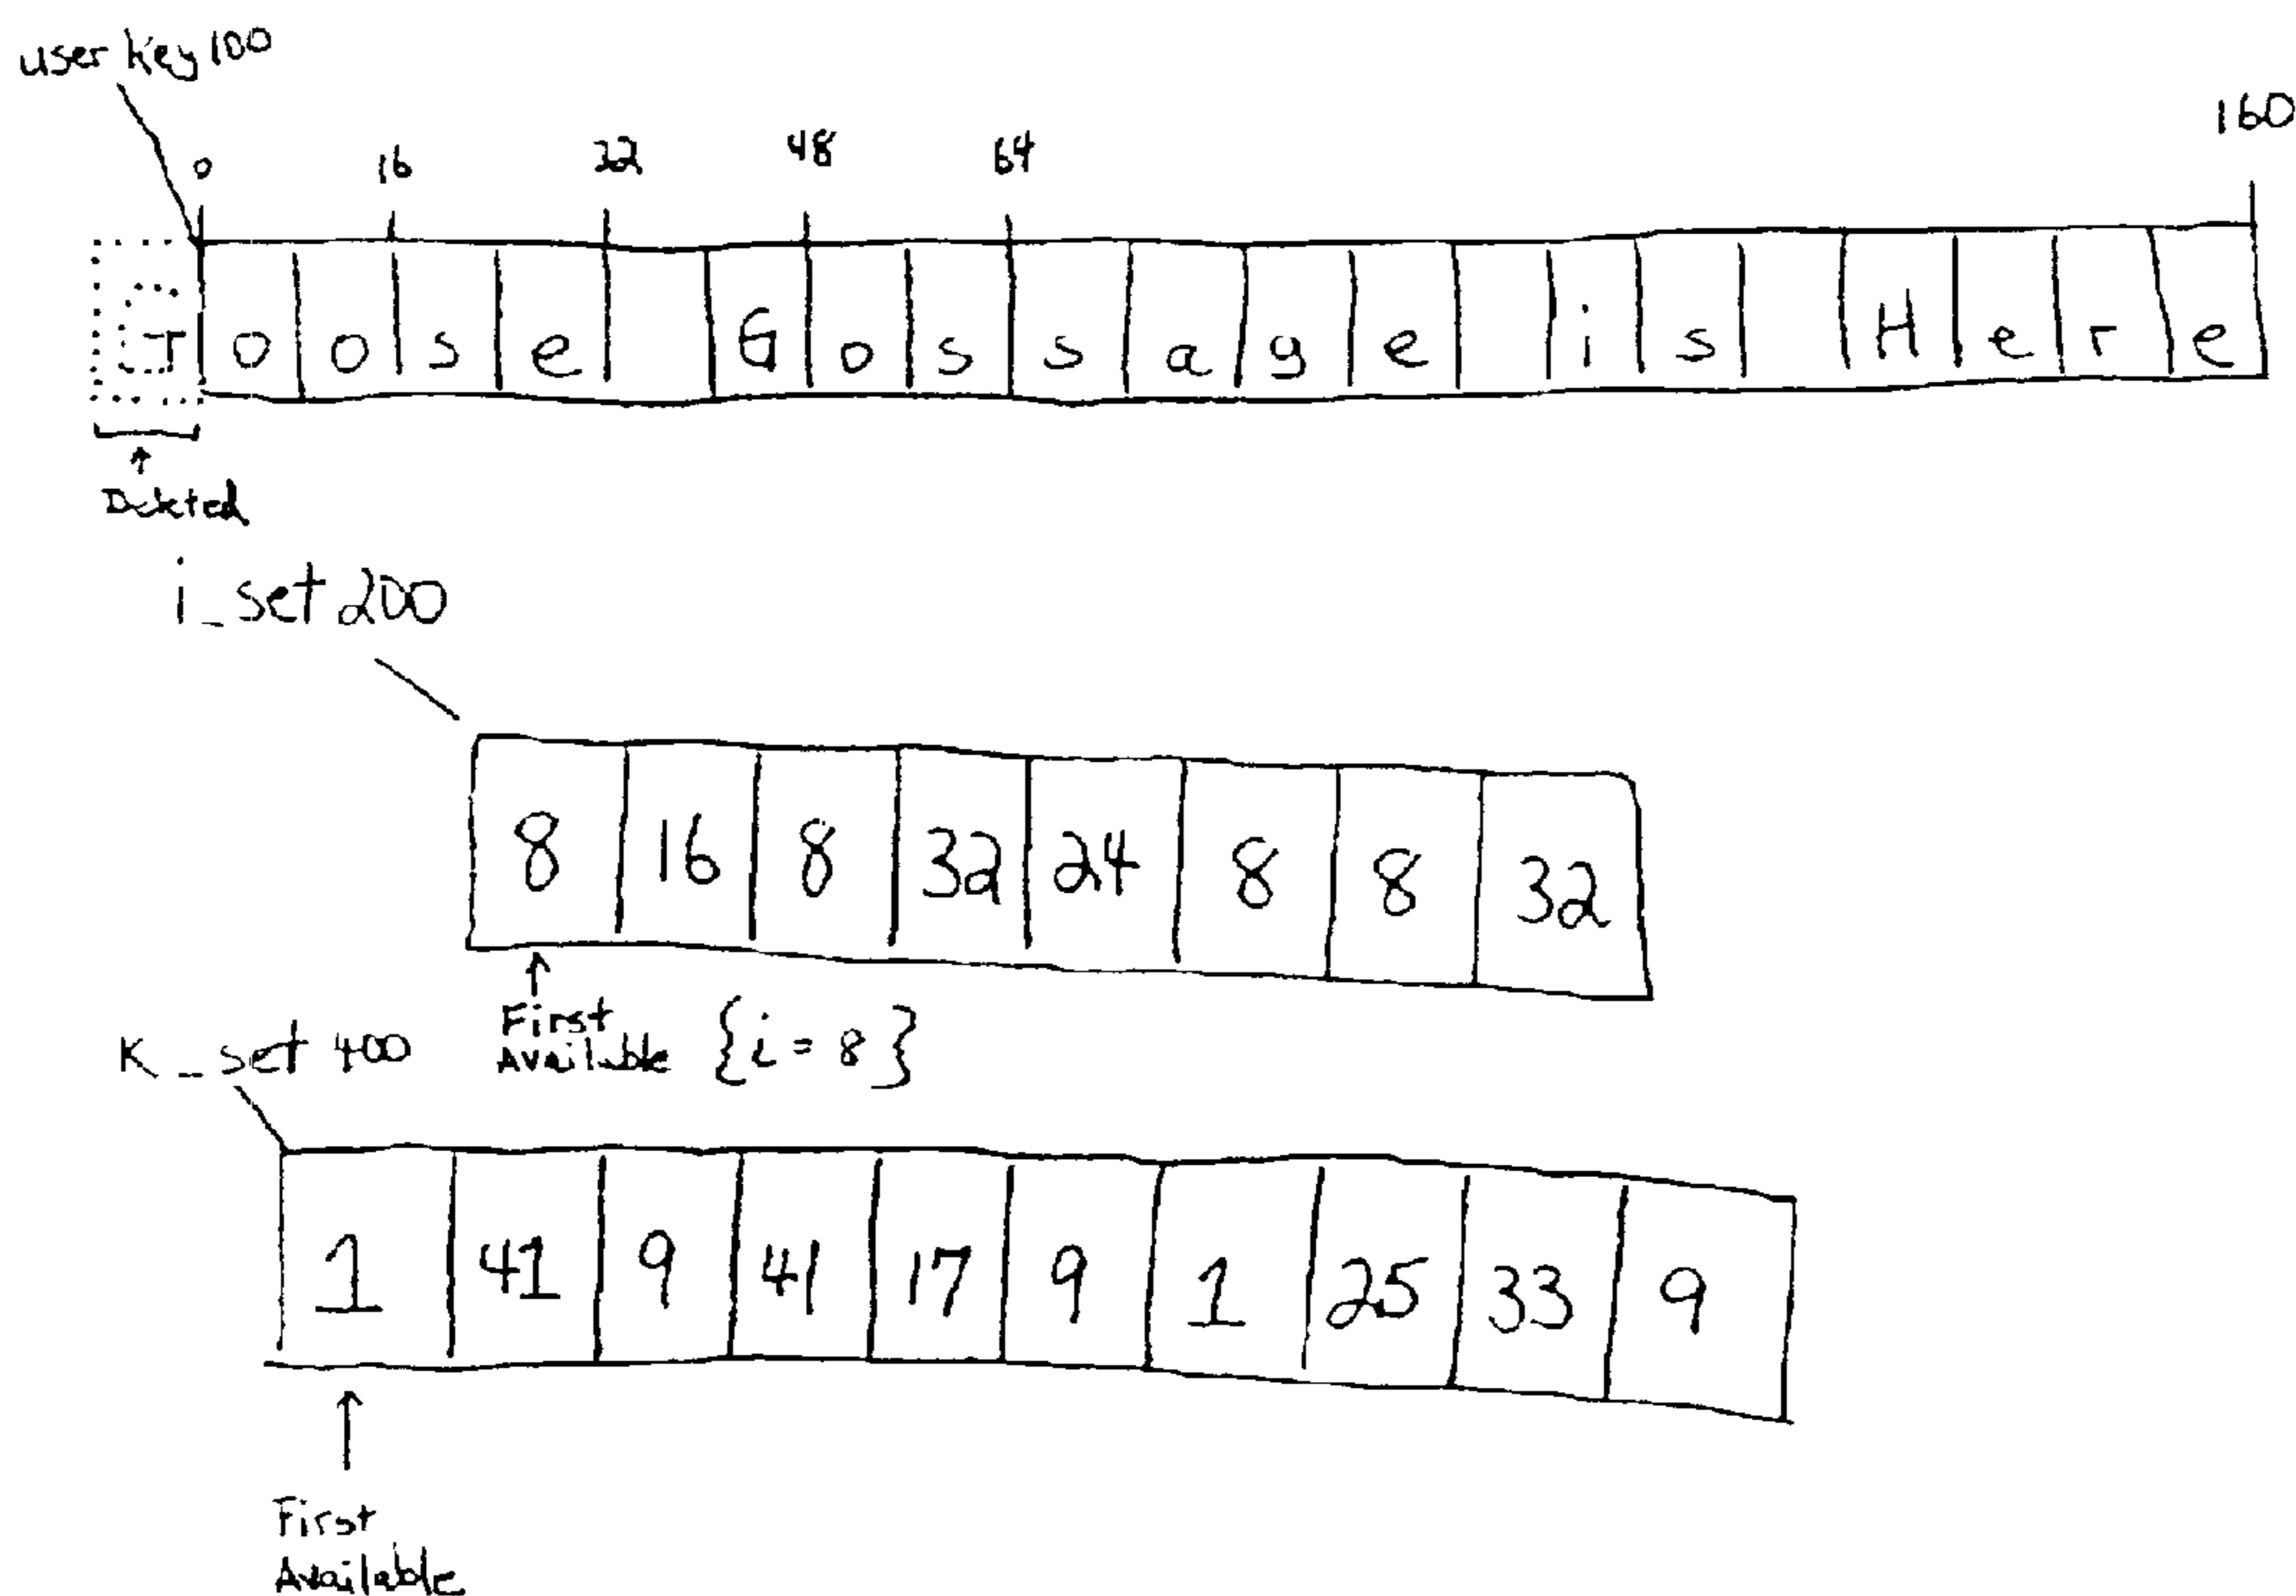 user key 100
0 16 32 48 64 160
G o o s e G o s s a g e i s H e r e
Deleted
i_set 200
8 16 8 32 24 8 8 32
First Available {i = 8}
K_set 400
1 41 9 41 17 9 1 25 33 9
First
Available